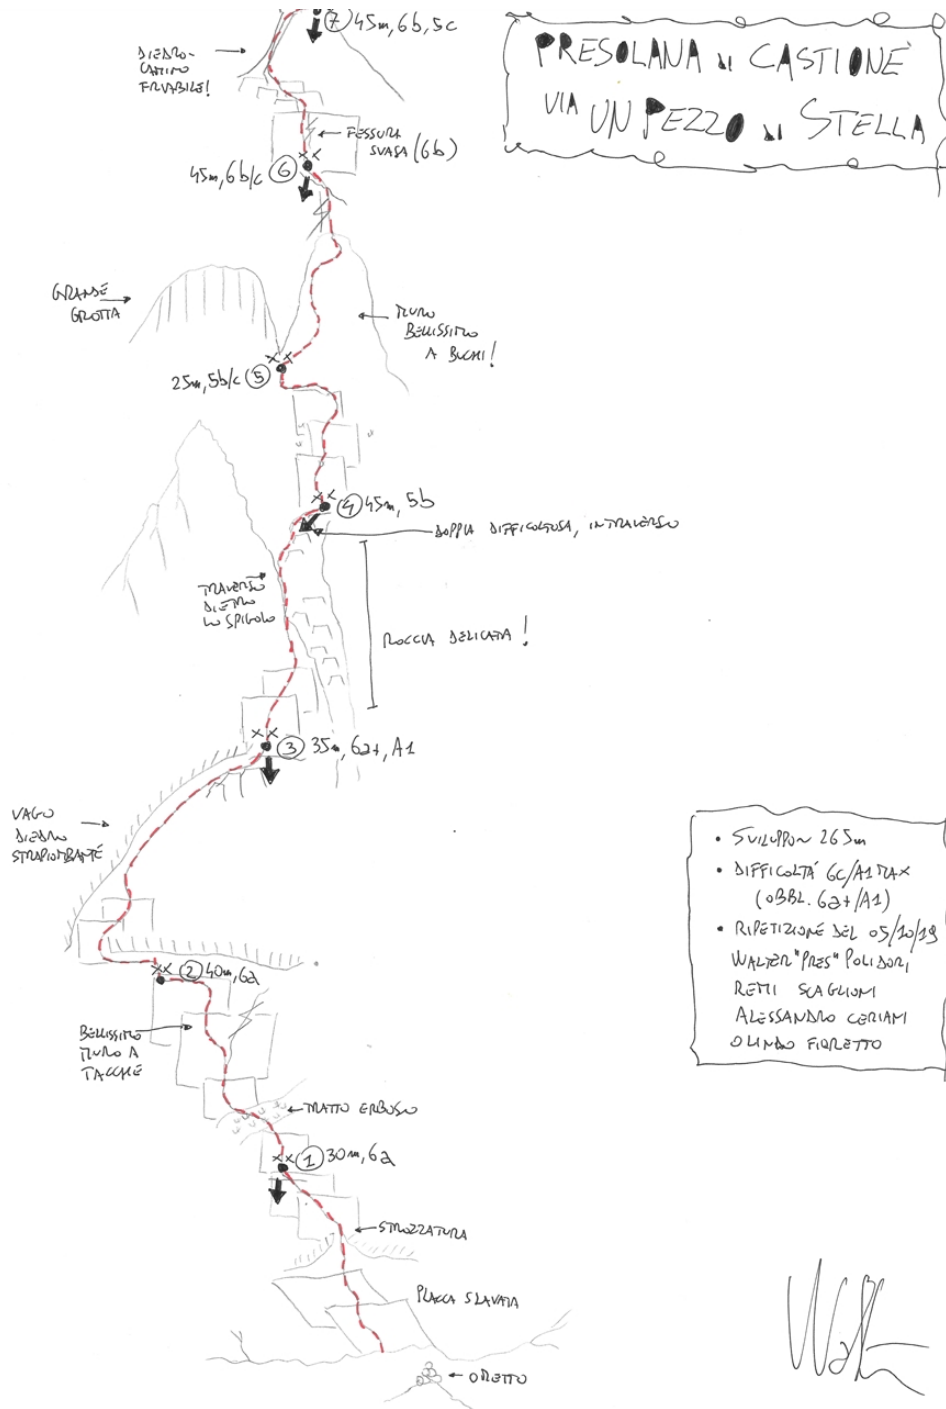 PRESOLANA DI CASTIONE
VIA UN PEZZO DI STELLA
7 45m, 6b, 5c
DIEDRO-
CAMINO
FRIABILE!
FESSURA
SVASA (6b)
45m, 6b/c 6
GRANDE
GROTTA
MURO
BELLISSIMO
A BUCHI!
25m, 5b/c 5
4 45m, 5b
DOPPIA DIFFICOLTOSA, IN TRAVERSO
TRAVERSO
DIETRO
LO SPIGOLO
ROCCIA DELICATA!
3 35m, 6a+, A1
VAGO
DIEDRO
STRAPIOMBANTE
2 40m, 6a
BELLISSIMO
MURO A
TACCHE
TRATTO ERBOSO
1 30m, 6a
STROZZATURA
PLACCA SLAVATA
OMETTO
• SVILUPPO ~ 265m
• DIFFICOLTÀ 6C/A1 MAX
(OBBL. 6a+/A1)
• RIPETIZIONE DEL 05/10/19
WALTER "PRES" POLIDORI,
REMI SCAGLIONI
ALESSANDRO CERIANI
OLINDO FIORETTO